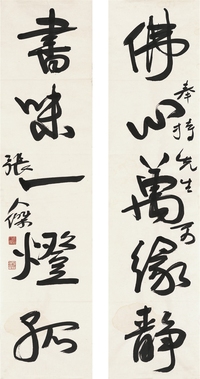 佛心萬緣靜
奉持先生
書味一燈孤
張人傑